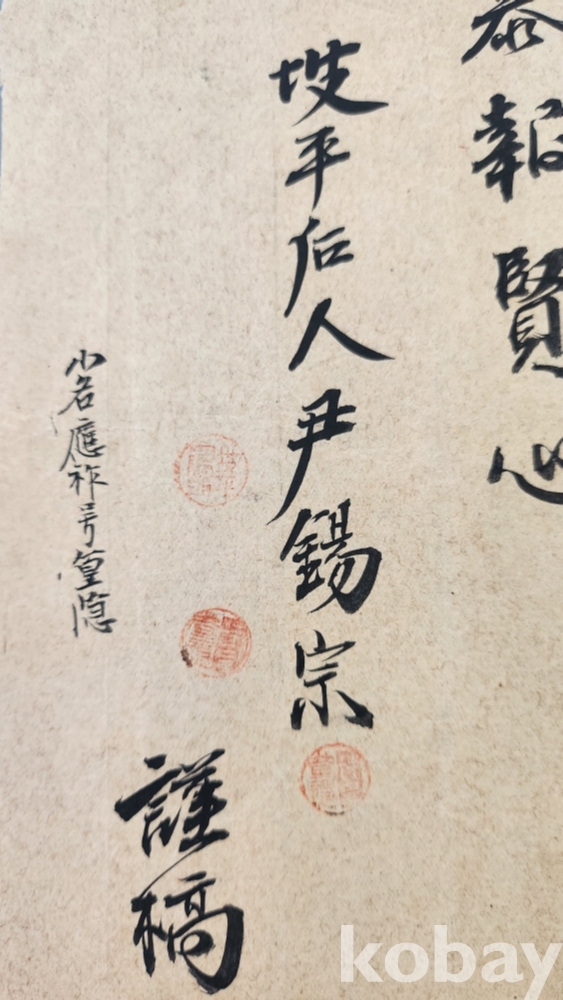 恭報賢心
坡平后人尹錫宗
謹稿
小名應祚号篁隱
kobay